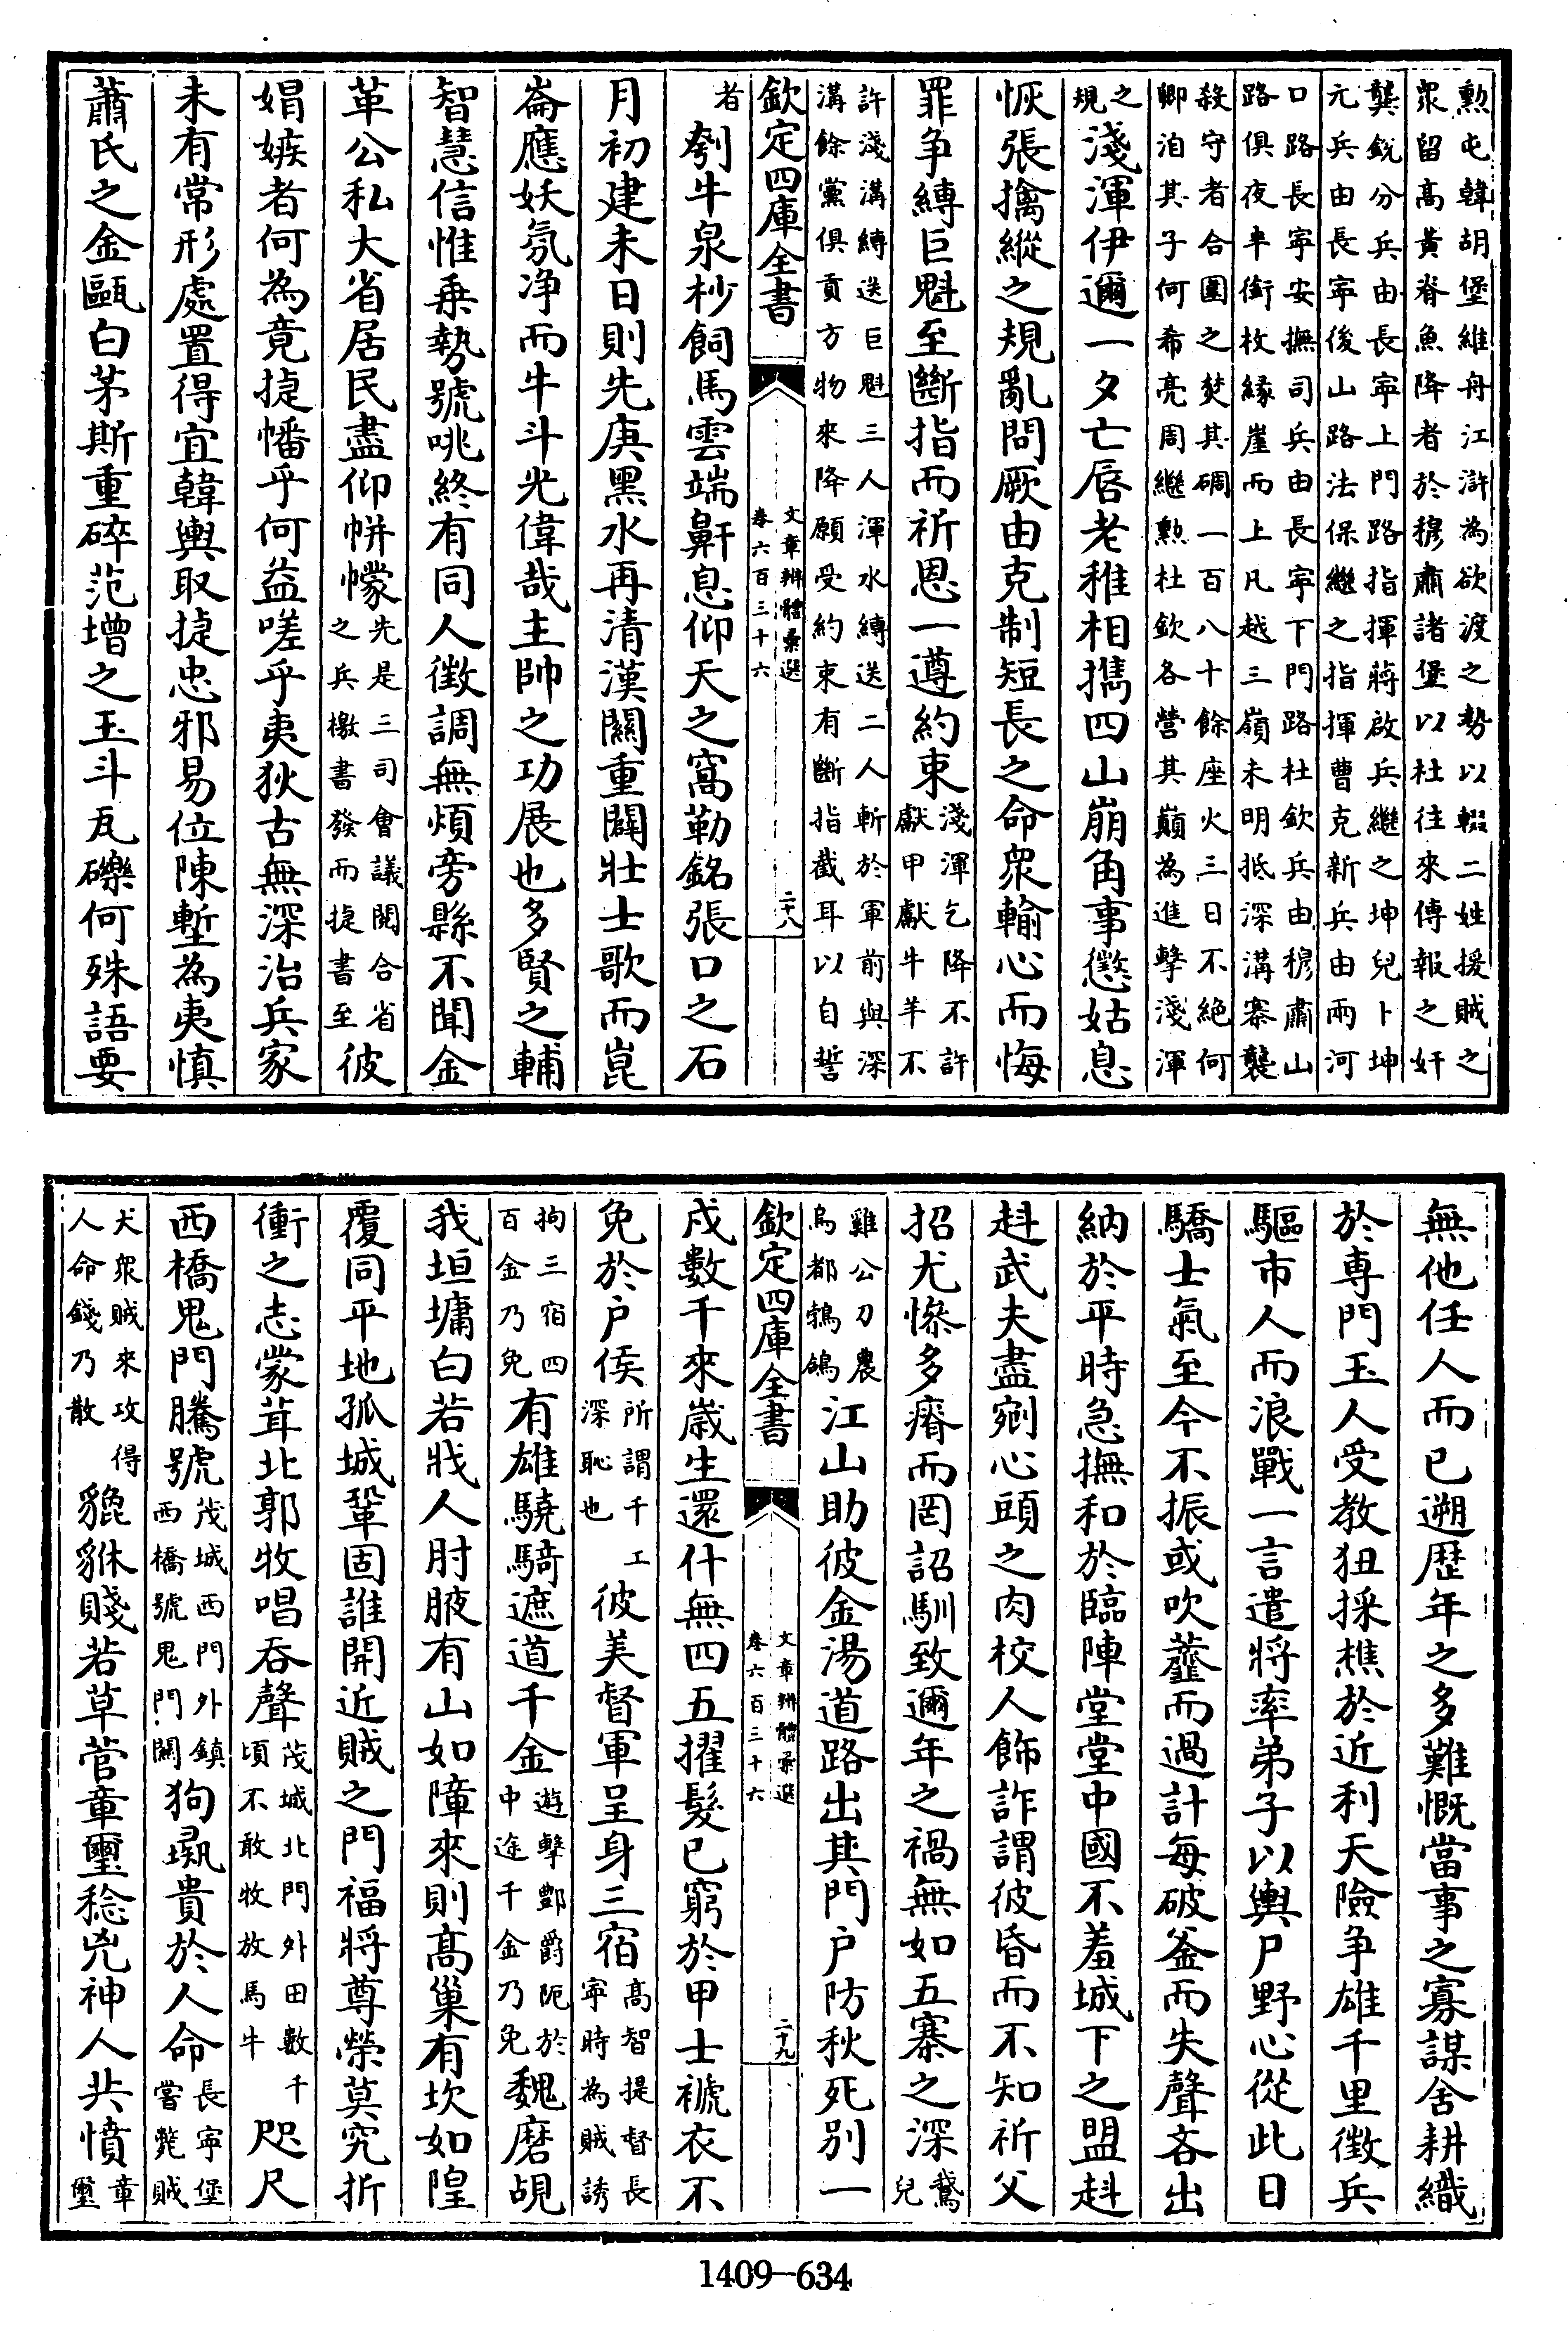 勲屯韓胡堡維舟江滸為欲渡之勢以輟二姓援賊之
衆留髙黄脊魚降者於穆肅諸堡以杜往來傳報之奸
龔鋭分兵由長寧上門路指揮蔣啟兵繼之坤兒卜坤
元兵由長寧後山路法保繼之指揮曹克新兵由兩河
口路長寧安撫司兵由長寧下門路杜欽兵由穆肅山
路俱夜半銜枚縁崖而上凡越三嶺未明抵深溝寨襲
殺守者合圍之焚其碉一百八十餘座火三日不絶何
卿洎其子何希亮周繼勲杜欽各營其巔為進擊淺渾
之
規
淺渾伊邇一夕亡唇老稚相攜四山崩角事懲姑息
恢張擒縱之規亂問厥由克制短長之命衆輸心而悔
罪争縛巨魁至斷指而祈恩一遵約束
淺渾乞降不許
獻甲獻牛羊不
許淺溝縛送巨魁三人渾水縛送二人斬於軍前與深
溝餘黨俱貢方物來降願受約束有斷指截耳以自誓
欽定四庫全書
文章辨體彚選
卷六百三十六
二十八
者
刳牛泉杪飼馬雲端鼾息仰天之窩勒銘張口之石
月初建未日則先庚黒水再清漢關重闢壯士歌而崑
崙應妖氛浄而牛斗光偉哉主帥之功展也多賢之輔
智慧信惟乗勢號咷終有同人徵調無煩旁縣不聞金
革公私大省居民盡仰帡幪
先是三司會議閱合省
之兵檄書發而捷書至
彼
娼嫉者何為竟捷幡乎何益嗟乎夷狄古無深治兵家
未有常形處置得宜韓輿取捷忠邪易位陳塹為夷慎
蕭氏之金甌白茅斯重碎范增之玉斗瓦礫何殊語要
無他任人而已遡歴年之多難慨當事之寡謀舍耕織
於專門玉人受教狃採樵於近利天險争雄千里徵兵
驅市人而浪戰一言遣將率弟子以輿尸野心從此日
驕士氣至今不振或吹虀而過計每破釜而失聲吝出
納於平時急撫和於臨陣堂堂中國不羞城下之盟赳
赳武夫盡剜心頭之肉校人飾詐謂彼昏而不知祈父
招尤慘多瘠而罔詔馴致邇年之禍無如五寨之深
鵞
兒
雞公刀農
烏都鵓鴿
江山助彼金湯道路出其門户防秋死别一
戍數千來嵗生還什無四五擢髮已窮於甲士褫衣不
免於户侯
所謂千工
深恥也
彼美督軍呈身三宿
髙智提督長
寧時為賊誘
拘三宿四
百金乃免
有雄驍騎遮道千金
遊擊酆爵阨於
中途千金乃免
魏磨覘
我垣墉白若戕人肘腋有山如障來則髙巢有坎如隍
覆同平地孤城鞏固誰開近賊之門福將尊榮莫究折
衝之志蒙茸北郭牧唱吞聲
茂城北門外田數千
頃不敢牧放馬牛
咫尺
西橋鬼門騰號
茂城西門外鎮
西橋號鬼門關
狗㼁貴於人命
長寧堡
嘗斃賊
犬衆賊來攻得
人命錢乃散
貔貅賤若草菅章璽稔兇神人共憤
章
璽
欽定四庫全書
文章辨體彚選
卷六百三十六
二十九
1409—634